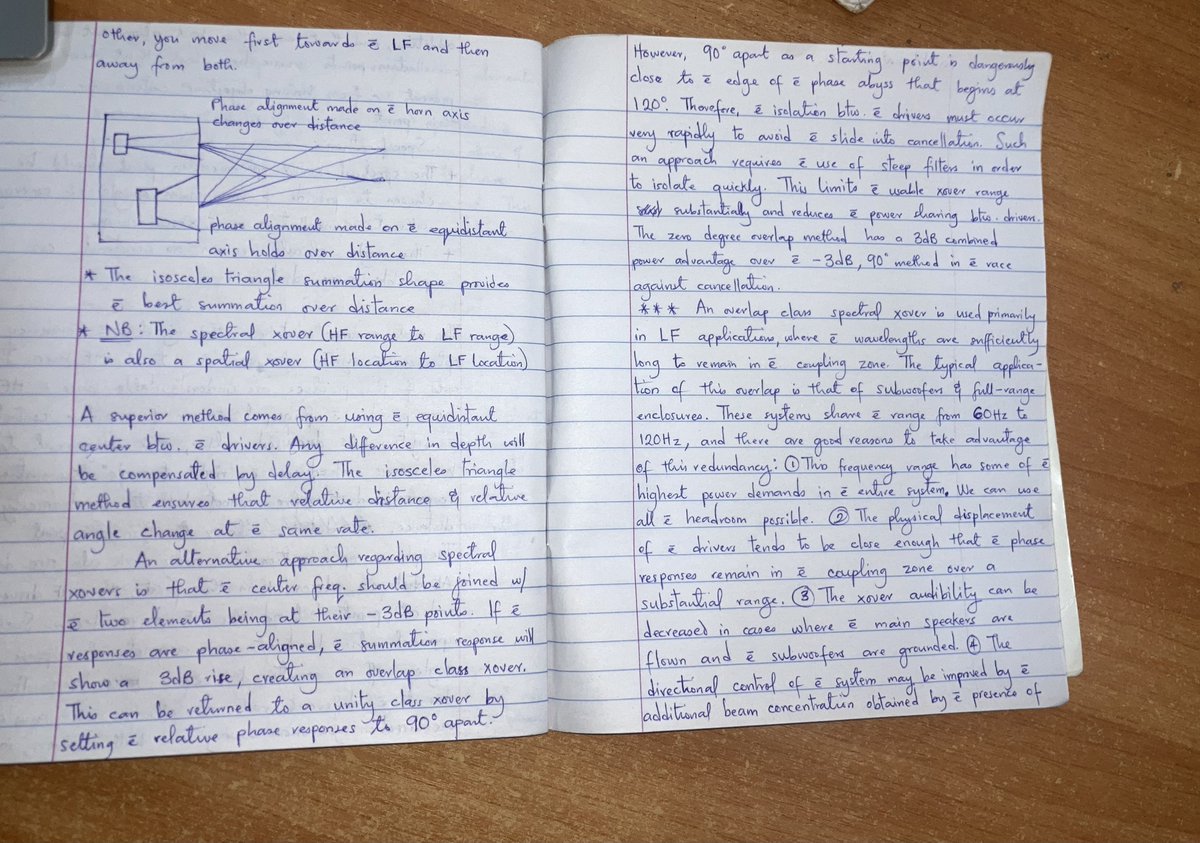 other, you move first towards ē LF and then
away from both.
Phase alignment made on ē horn axis
changes over distance
phase alignment made on ē equidistant
axis holds over distance
* The isosceles triangle summation shape provides
ē best summation over distance
* NB: The spectral xover (HF range to LF range)
is also a spatial xover (HF location to LF location)
A superior method comes from using ē equidistant
center btw. ē drivers. Any difference in depth will
be compensated by delay. The isosceles triangle
method ensures that relative distance & relative
angle change at ē same rate.
An alternative approach regarding spectral
xovers is that ē center freq. should be joined w/
ē two elements being at their -3dB points. If ē
responses are phase-aligned, ē summation response will
show a 3dB rise, creating an overlap class xover.
This can be returned to a unity class xover by
setting ē relative phase responses to 90° apart.
However, 90° apart as a starting point is dangerously
close to ē edge of ē phase abyss that begins at
120°. Therefore, ē isolation btw. ē drivers must occur
very rapidly to avoid ē slide into cancellation. Such
an approach requires ē use of steep filters in order
to isolate quickly. This limits ē usable xover range
substantially and reduces ē power sharing btw. drivers.
The zero degree overlap method has a 3dB combined
power advantage over ē -3dB, 90° method in ē race
against cancellation.
*** An overlap class spectral xover is used primarily
in LF applications, where ē wavelengths are sufficiently
long to remain in ē coupling zone. The typical applica-
tion of this overlap is that of subwoofers & full-range
enclosures. These systems share ē range from 60Hz to
120Hz, and there are good reasons to take advantage
of this redundancy: ① This frequency range has some of ē
highest power demands in ē entire system. We can use
all ē headroom possible. ② The physical displacement
of ē drivers tends to be close enough that ē phase
responses remain in ē coupling zone over a
substantial range. ③ The xover audibility can be
decreased in cases where ē main speakers are
flown and ē subwoofers are grounded. ④ The
directional control of ē system may be improved by ē
additional beam concentration obtained by ē presence of